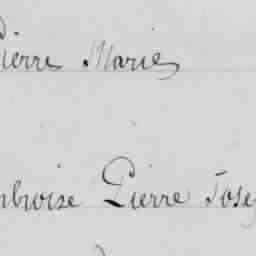 Pierre Marie
mbroise Pierre Jose